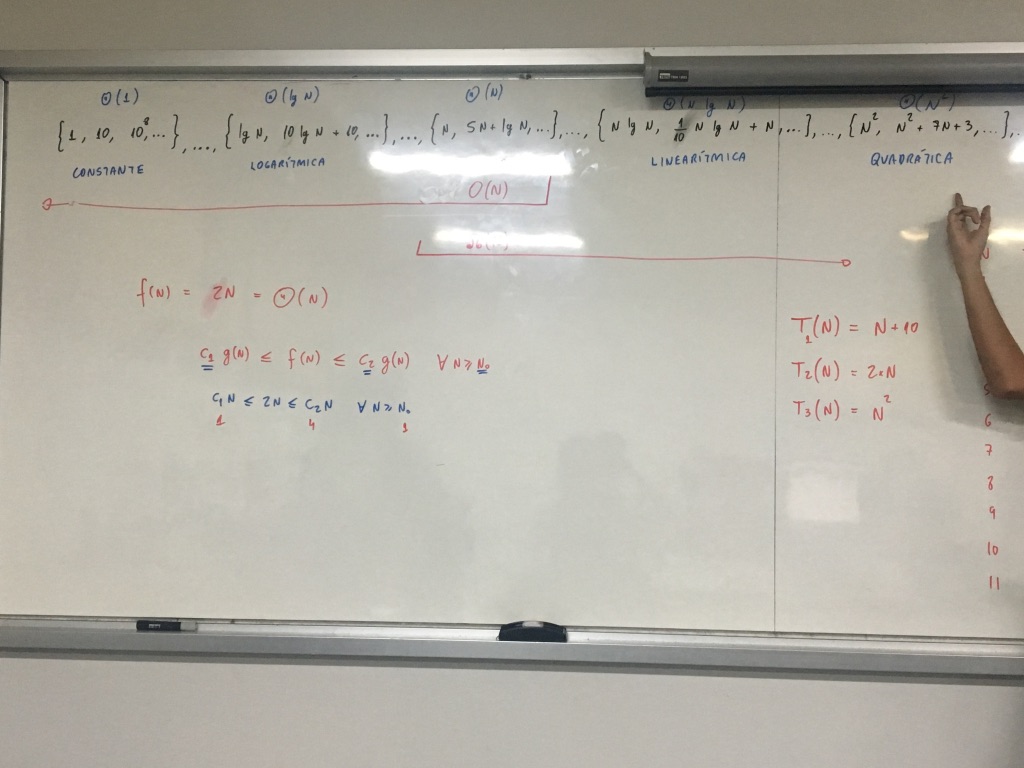 Θ(1) Θ(lg N) Θ(N) Θ(N lg N) Θ(N²)
{1, 10, 10⁸, ...}, ..., {lg N, 10 lg N + 10, ...}, ..., {N, 5N + lg N, ...}, ..., {N lg N, 1/10 N lg N + N, ...}, ..., {N², N² + 7N + 3, ...}, ...
CONSTANTE LOGARÍTMICA LINEARÍTMICA QUADRÁTICA
O(N)
f(N) = 2N = Θ(N)
C₁ g(N) ≤ f(N) ≤ C₂ g(N) ∀ N ≥ N₀
C₁N ≤ 2N ≤ C₂N ∀ N ≥ N₀
1 4 1
N
T₁(N) = N + 10
T₂(N) = 2×N
T₃(N) = N²
5
6
7
8
9
10
11